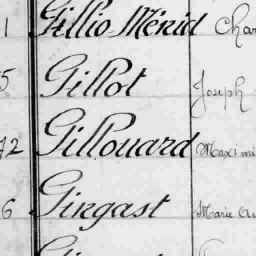 1 Gillio Mérid Char
5 Gillot Joseph
72 Gillouard Maximi
6 Gingast Marie Au